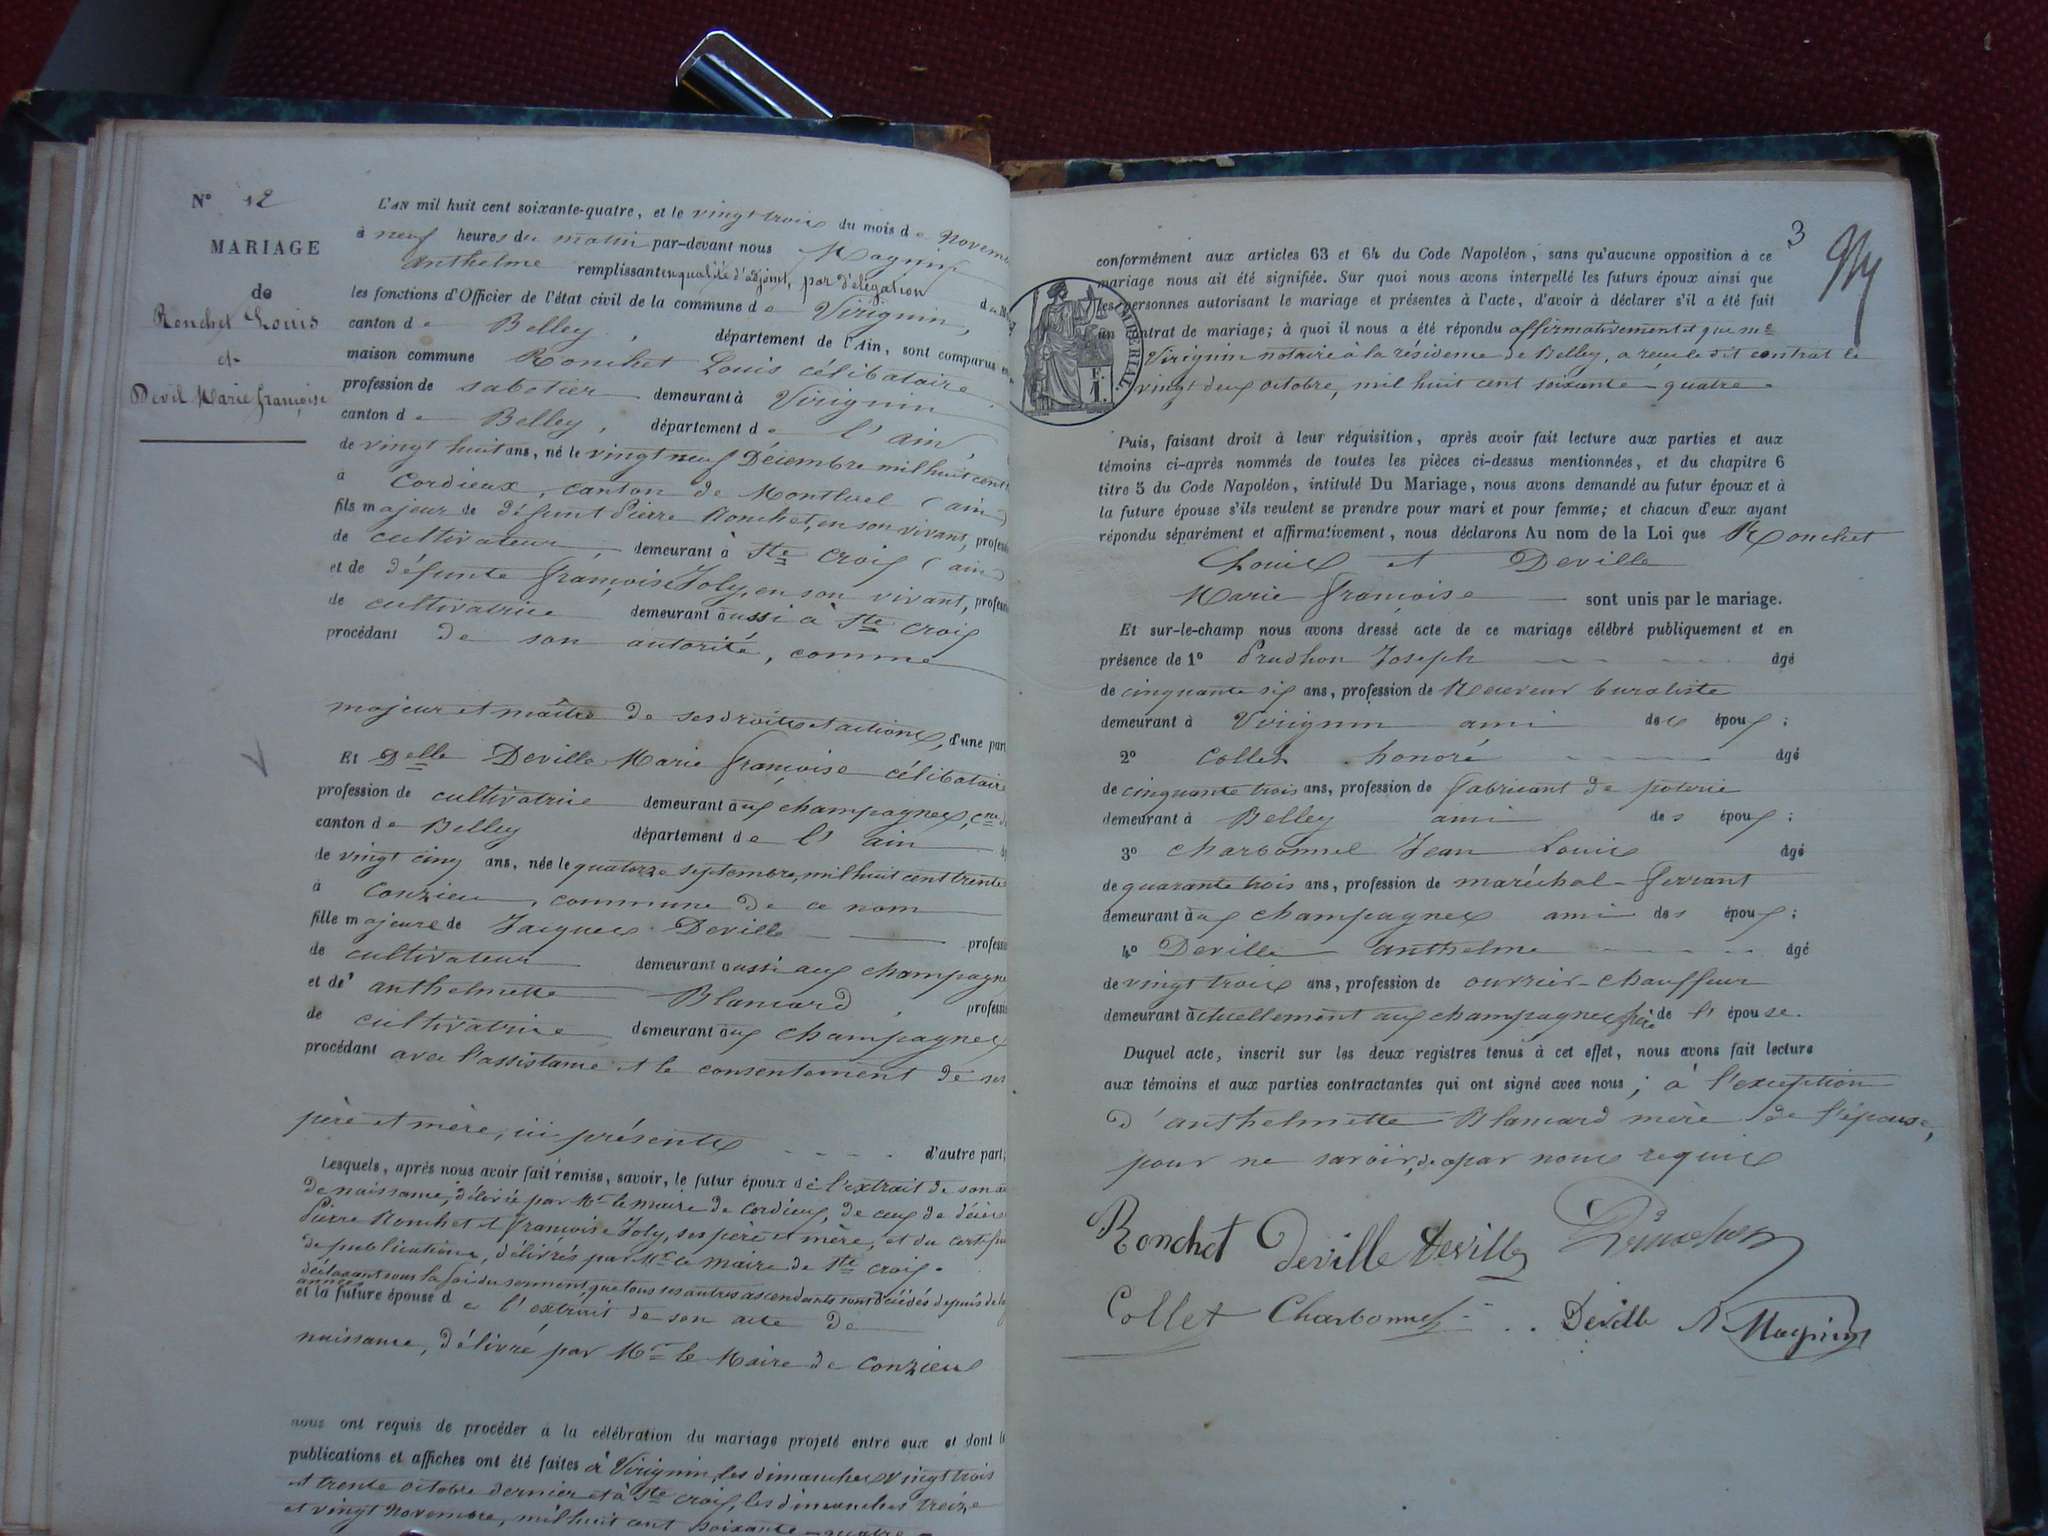 N° 12
MARIAGE
de
Ronchet Louis
et
Devil Marie françoise
L'AN mil huit cent soixante-quatre, et le vingt trois du mois de Novem
à neuf heures du matin par-devant nous Magnin
Anthelme remplissant en qualité d'adjoint, par délégation
les fonctions d'Officier de l'état civil de la commune de Virignin,
canton de Belley, département de l'Ain, sont comparus en
maison commune Ronchet Louis célibataire
profession de sabotier demeurant à Virignin
canton de Belley, département de l'ain,
de vingt huit ans, né le vingt neuf Décembre mil huit cent
à Cordieux, canton de Montluel (ain)
fils majeur de défunt Pierre Ronchet, en son vivant, profess
de cultivateur, demeurant à Ste Croix (ain)
et de défunte françoise Joly, en son vivant, profess
de cultivatrice demeurant aussi à Ste Croix
procédant de son autorité, comme
majeur et maître de ses droits et actions, d'une part
Et Delle Deville Marie françoise célibataire
profession de cultivatrice demeurant aux champagnes, cne de
canton de Belley département de l'ain
de vingt cinq ans, née le quatorze septembre, mil huit cent trente
à Conzieu, commune de ce nom
fille majeure de Jacques Deville profess
de cultivateur demeurant aussi aux champagne
et de anthelmette Blancard, profess
de cultivatrice demeurant aux champagnes
procédant avec l'assistance et le consentement de ses
père et mère, ici présents d'autre part;
Lesquels, après nous avoir fait remise, savoir, le futur époux de l'extrait de son
de naissance, délivré par Mr le maire de Cordieux, de ceux de décès
Pierre Ronchet et françoise Joly, ses père et mère, et du certifi
de publications, délivrés par Mr le Maire de Ste Croix.
déclarant sous la foi du serment, que tous ses autres ascendants sont décédés depuis
années
et la future épouse de l'extrait de son acte de
naissance, délivré par Mr le Maire de Conzieu
nous ont requis de procéder à la célébration du mariage projeté entre eux et dont l
publications et affiches ont été faites à Virignin, les dimanches vingt trois
et trente octobre dernier et à Ste Croix, les dimanches treize
et vingt Novembre, mil huit cent soixante-quatre
3
conformément aux articles 63 et 64 du Code Napoléon, sans qu'aucune opposition à ce
mariage nous ait été signifiée. Sur quoi nous avons interpellé les futurs époux ainsi que
les personnes autorisant le mariage et présentes à l'acte, d'avoir à déclarer s'il a été fait
un contrat de mariage; à quoi il nous a été répondu affirmativement et que Me
Virignin notaire à la résidence de Belley, a reçu le dit contrat le
vingt deux octobre, mil huit cent soixante-quatre
IMPERIAL.
F.
1.
Puis, faisant droit à leur réquisition, après avoir fait lecture aux parties et aux
témoins ci-après nommés de toutes les pièces ci-dessus mentionnées, et du chapitre 6
titre 5 du Code Napoléon, intitulé Du Mariage, nous avons demandé au futur époux et à
la future épouse s'ils veulent se prendre pour mari et pour femme; et chacun d'eux ayant
répondu séparément et affirmativement, nous déclarons Au nom de la Loi que Ronchet
Louis et Deville
Marie françoise sont unis par le mariage.
Et sur-le-champ nous avons dressé acte de ce mariage célébré publiquement et en
présence de 1° Prudhon Joseph âgé
de cinquante six ans, profession de Receveur buraliste
demeurant à Virignin ami des époux;
2° Collet honoré âgé
de cinquante trois ans, profession de fabricant de poterie
demeurant à Belley ami des époux;
3° Charbonnel Jean Louis âgé
de quarante trois ans, profession de maréchal-ferrant
demeurant aux champagnes ami des époux;
4° Deville anthelme âgé
de vingt trois ans, profession de ouvrier-chauffeur
demeurant actuellement aux champagnes frère de l'épouse.
Duquel acte, inscrit sur les deux registres tenus à cet effet, nous avons fait lecture
aux témoins et aux parties contractantes qui ont signé avec nous; à l'exception
d'anthelmette Blancard mère de l'épouse,
pour ne savoir, de par nous requis
Ronchet Deville Deville Prudhon
Collet Charbonnel Deville A Magnin